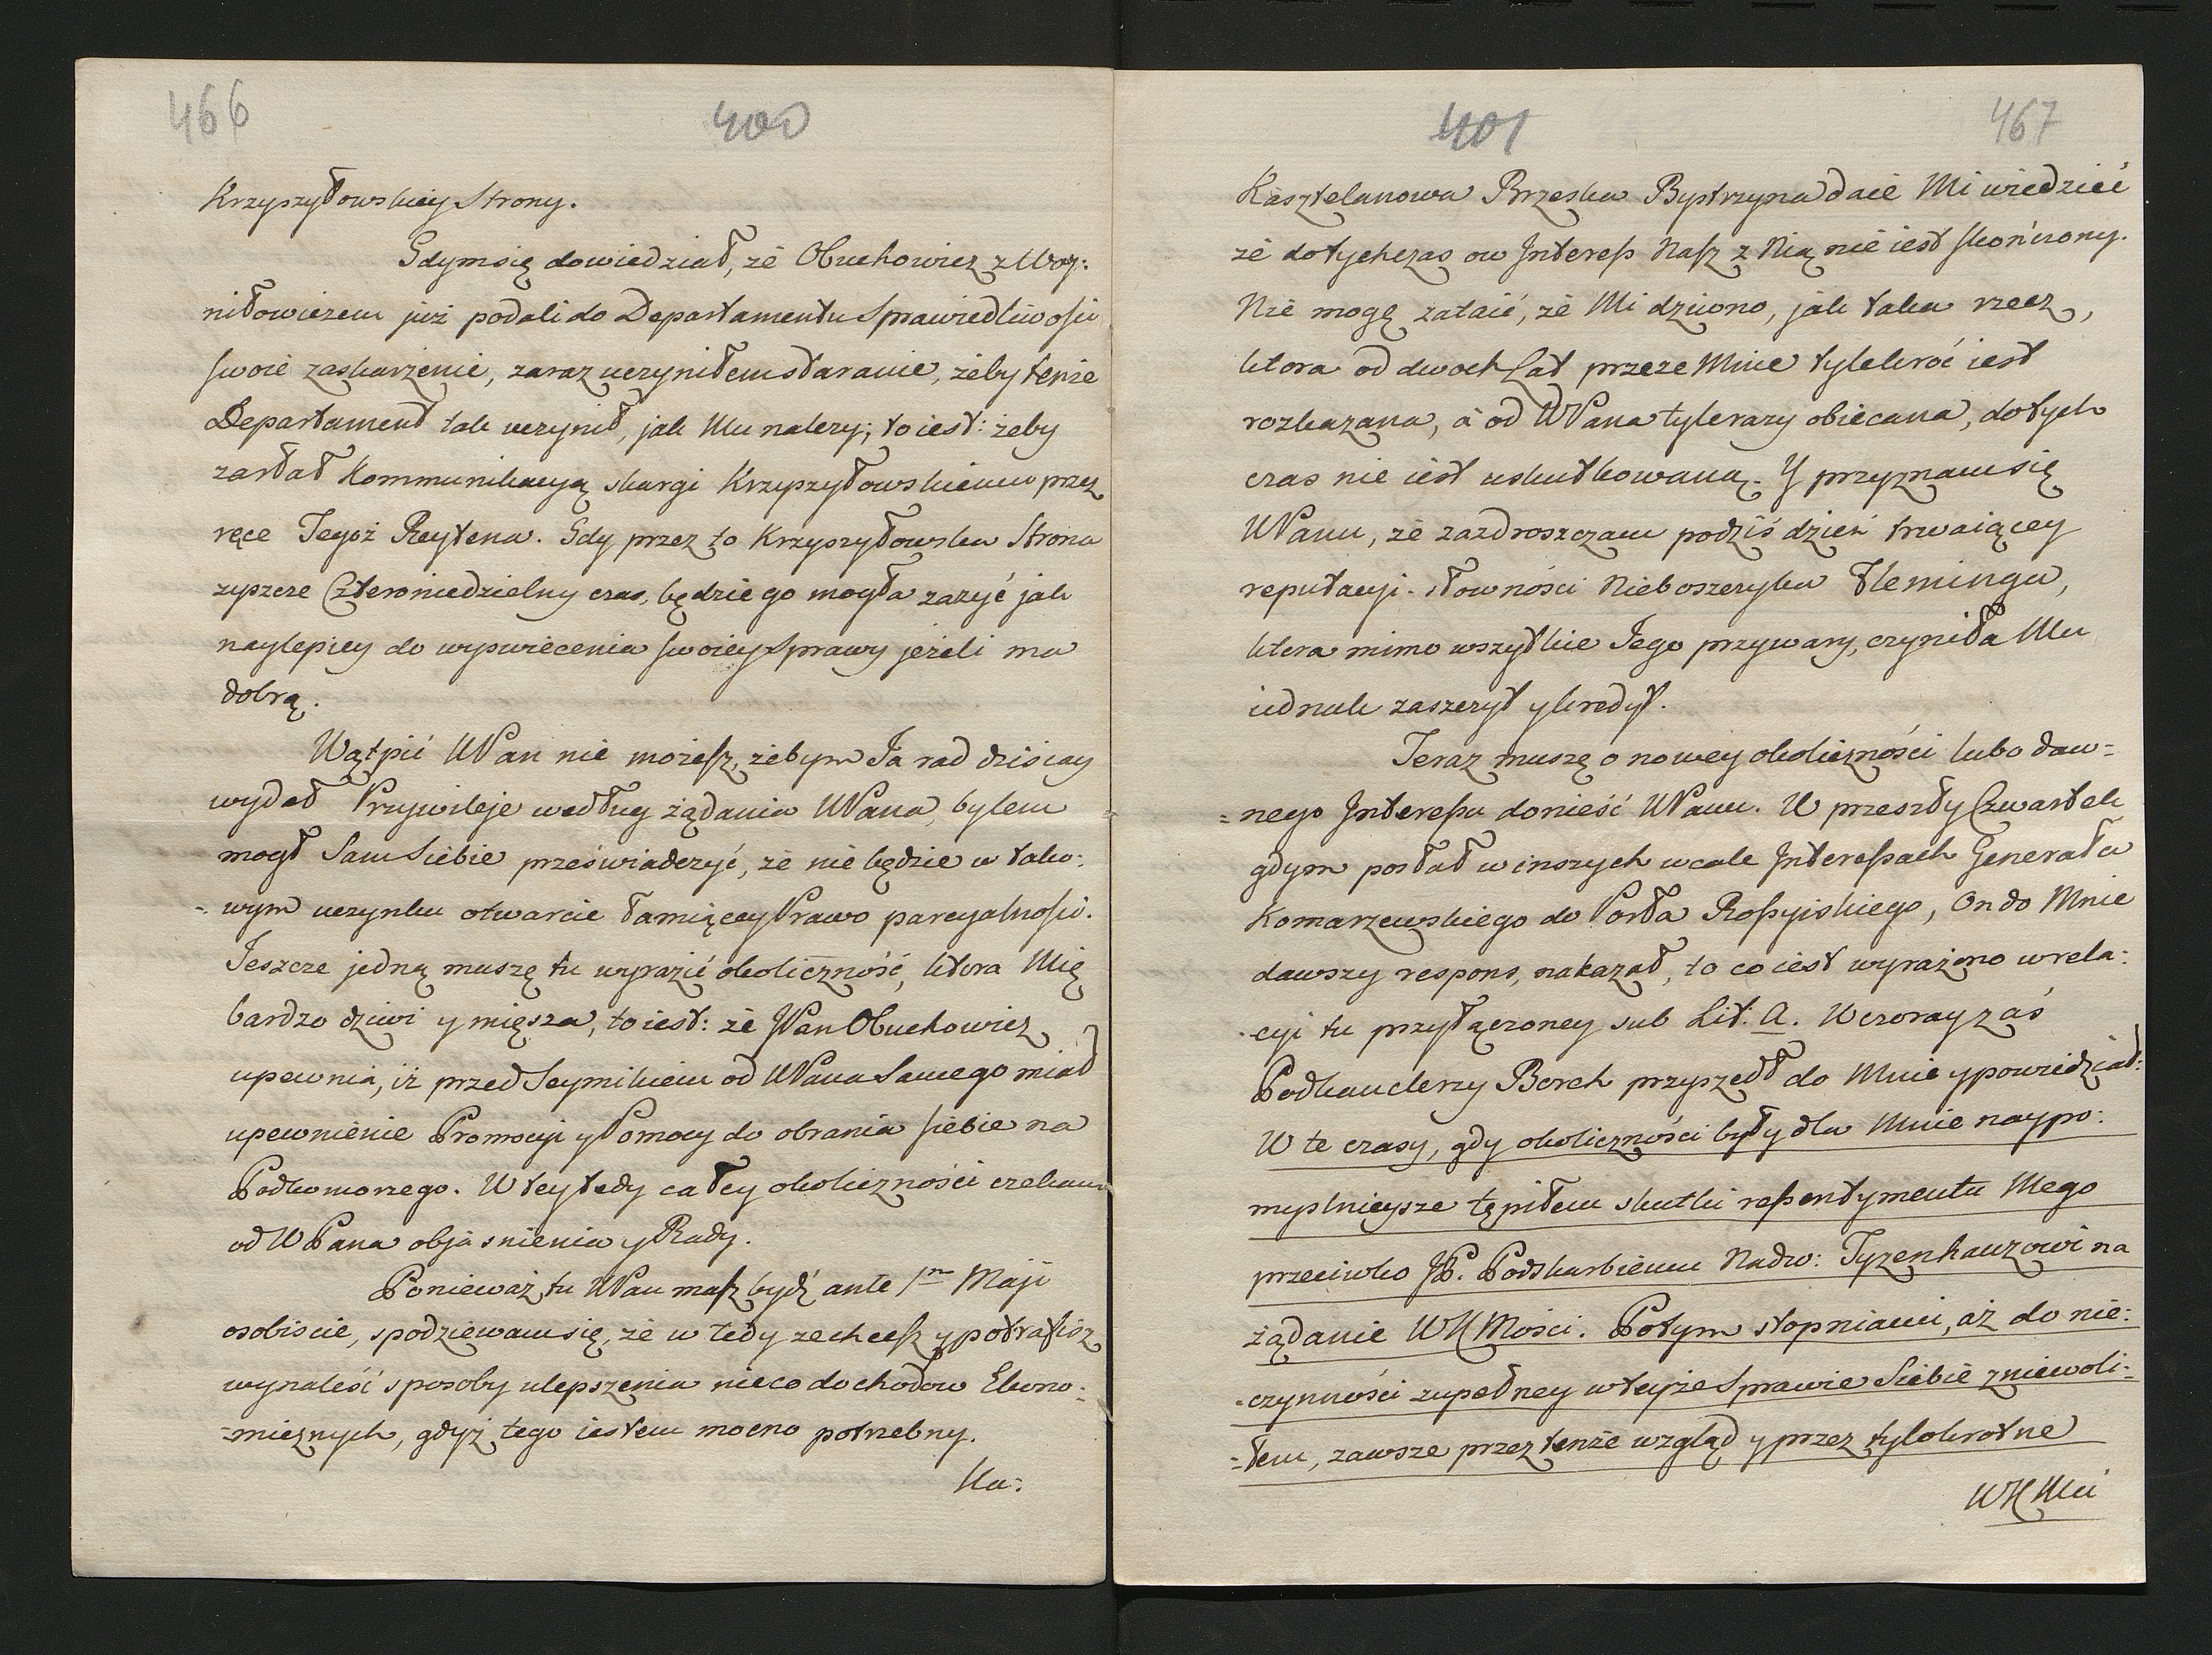 466
400
Krzyszyłowskiey Strony.
Gdym się dowiedział, że Obuchowicz z Woy:
niłowiczem już podali do Departamentu Sprawiedliwości
swoie zaskarżenie, zaraz uczyniłem staranie, żeby tenże
Departament tak uczynił, jak Mu należy; to iest: żeby
zasłał Kommunikacyą skargi Krzyszyłowskiemu przez
ręce Tegoż Reytena. Gdy przez to Krzyszyłowska Strona
zyszcze Czteroniedzielny czas, będzie go mogła zażyć jak
naylepiey do wyswiecenia swoiey Sprawy jeżeli ma
dobrą.
Wątpić WPan nie możesz, żebym Ja rad dzisiay
wydał Przywileje według żądania WPana, bylem
mogł Sam Siebie przeświadczyć, że nie będzie w tako:
-wym uczynku otwarcie łamiącey Prawo parcyalności.
Jeszcze jedną muszę tu wyrazić okoliczność, ktora Mię
bardzo dziwi y mięsza, to iest: że JPan Obuchowicz
upewnia, iż przed Seymikiem od WPana Samego miał
upewnienie Promocyi y Pomocy do obrania siebie na
Podkomorzego. W tey tedy całey okoliczności czekam
od WPana objasnienia y Rady.
Ponieważ tu WPan masz bydź ante 1m Maji
osobiscie, spodziewam się, że w tedy zechcesz y potrafisz
wynaleść sposoby ulepszenia nieco dochodow Ekono:
-micznych, gdyż tego iestem mocno potrzebny.
Ka:
401
467
Kasztelanowa Brzeska Bystrzyna daie Mi wiedzieć
że dotychczas ow Interess Nasz z Nią nie iest skończony.
Nie mogę zataić, że Mi dziwno, jak taka rzecz,
ktora od dwoch Lat przeze Mnie tylekroć iest
rozkazana, a od WPana tylerazy obiecana, dotych
czas nie iest uskutkowaną. Y przyznam się
WPanu, że zazdroszczam podziś dzień trwaiącey
reputacyi słowności Nieboszczyka Fleminga,
ktora mimo wszytkie Jego przywary, czyniła Mu
iednak zaszczyt y kredyt.
Teraz muszę o nowey okoliczności lubo daw=
=nego Interessu donieść WPanu. W przeszły Czwartek
gdym posłał w inszych wcale Interessach Generała
Komarzewskiego do Posła Rossyiskiego, On do Mnie
dawszy respons, nakazał, to co iest wyrażono w rela:
-cyi tu przyłączoney sub Lit: A. Wczoray zaś
Podkanclerzy Borch przyszedł do Mnie y powiedział:
W te czasy, gdy okoliczności były dla Mnie naypo:
myslnieysze tępiłem skutki ressentymentu Mego
przeciwko JP. Podskarbiemu Nadw: Tyzenhauzowi na
żądanie WKMości. Potym stopniami, aż do nie:
-czynności zupełney w teyże Sprawie Siebie zniewoli:
-łem, zawsze przez tenże wzgląd y przez tylokrotne
WKMci